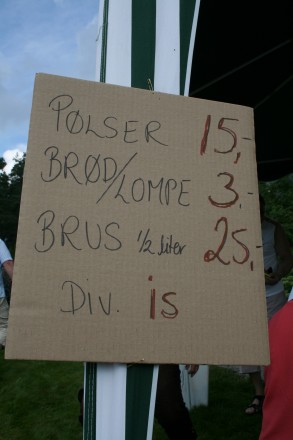 PØLSER 15,-
BRØD/LOMPE 3,-
BRUS 1/2 liter 25,-
DIV. is